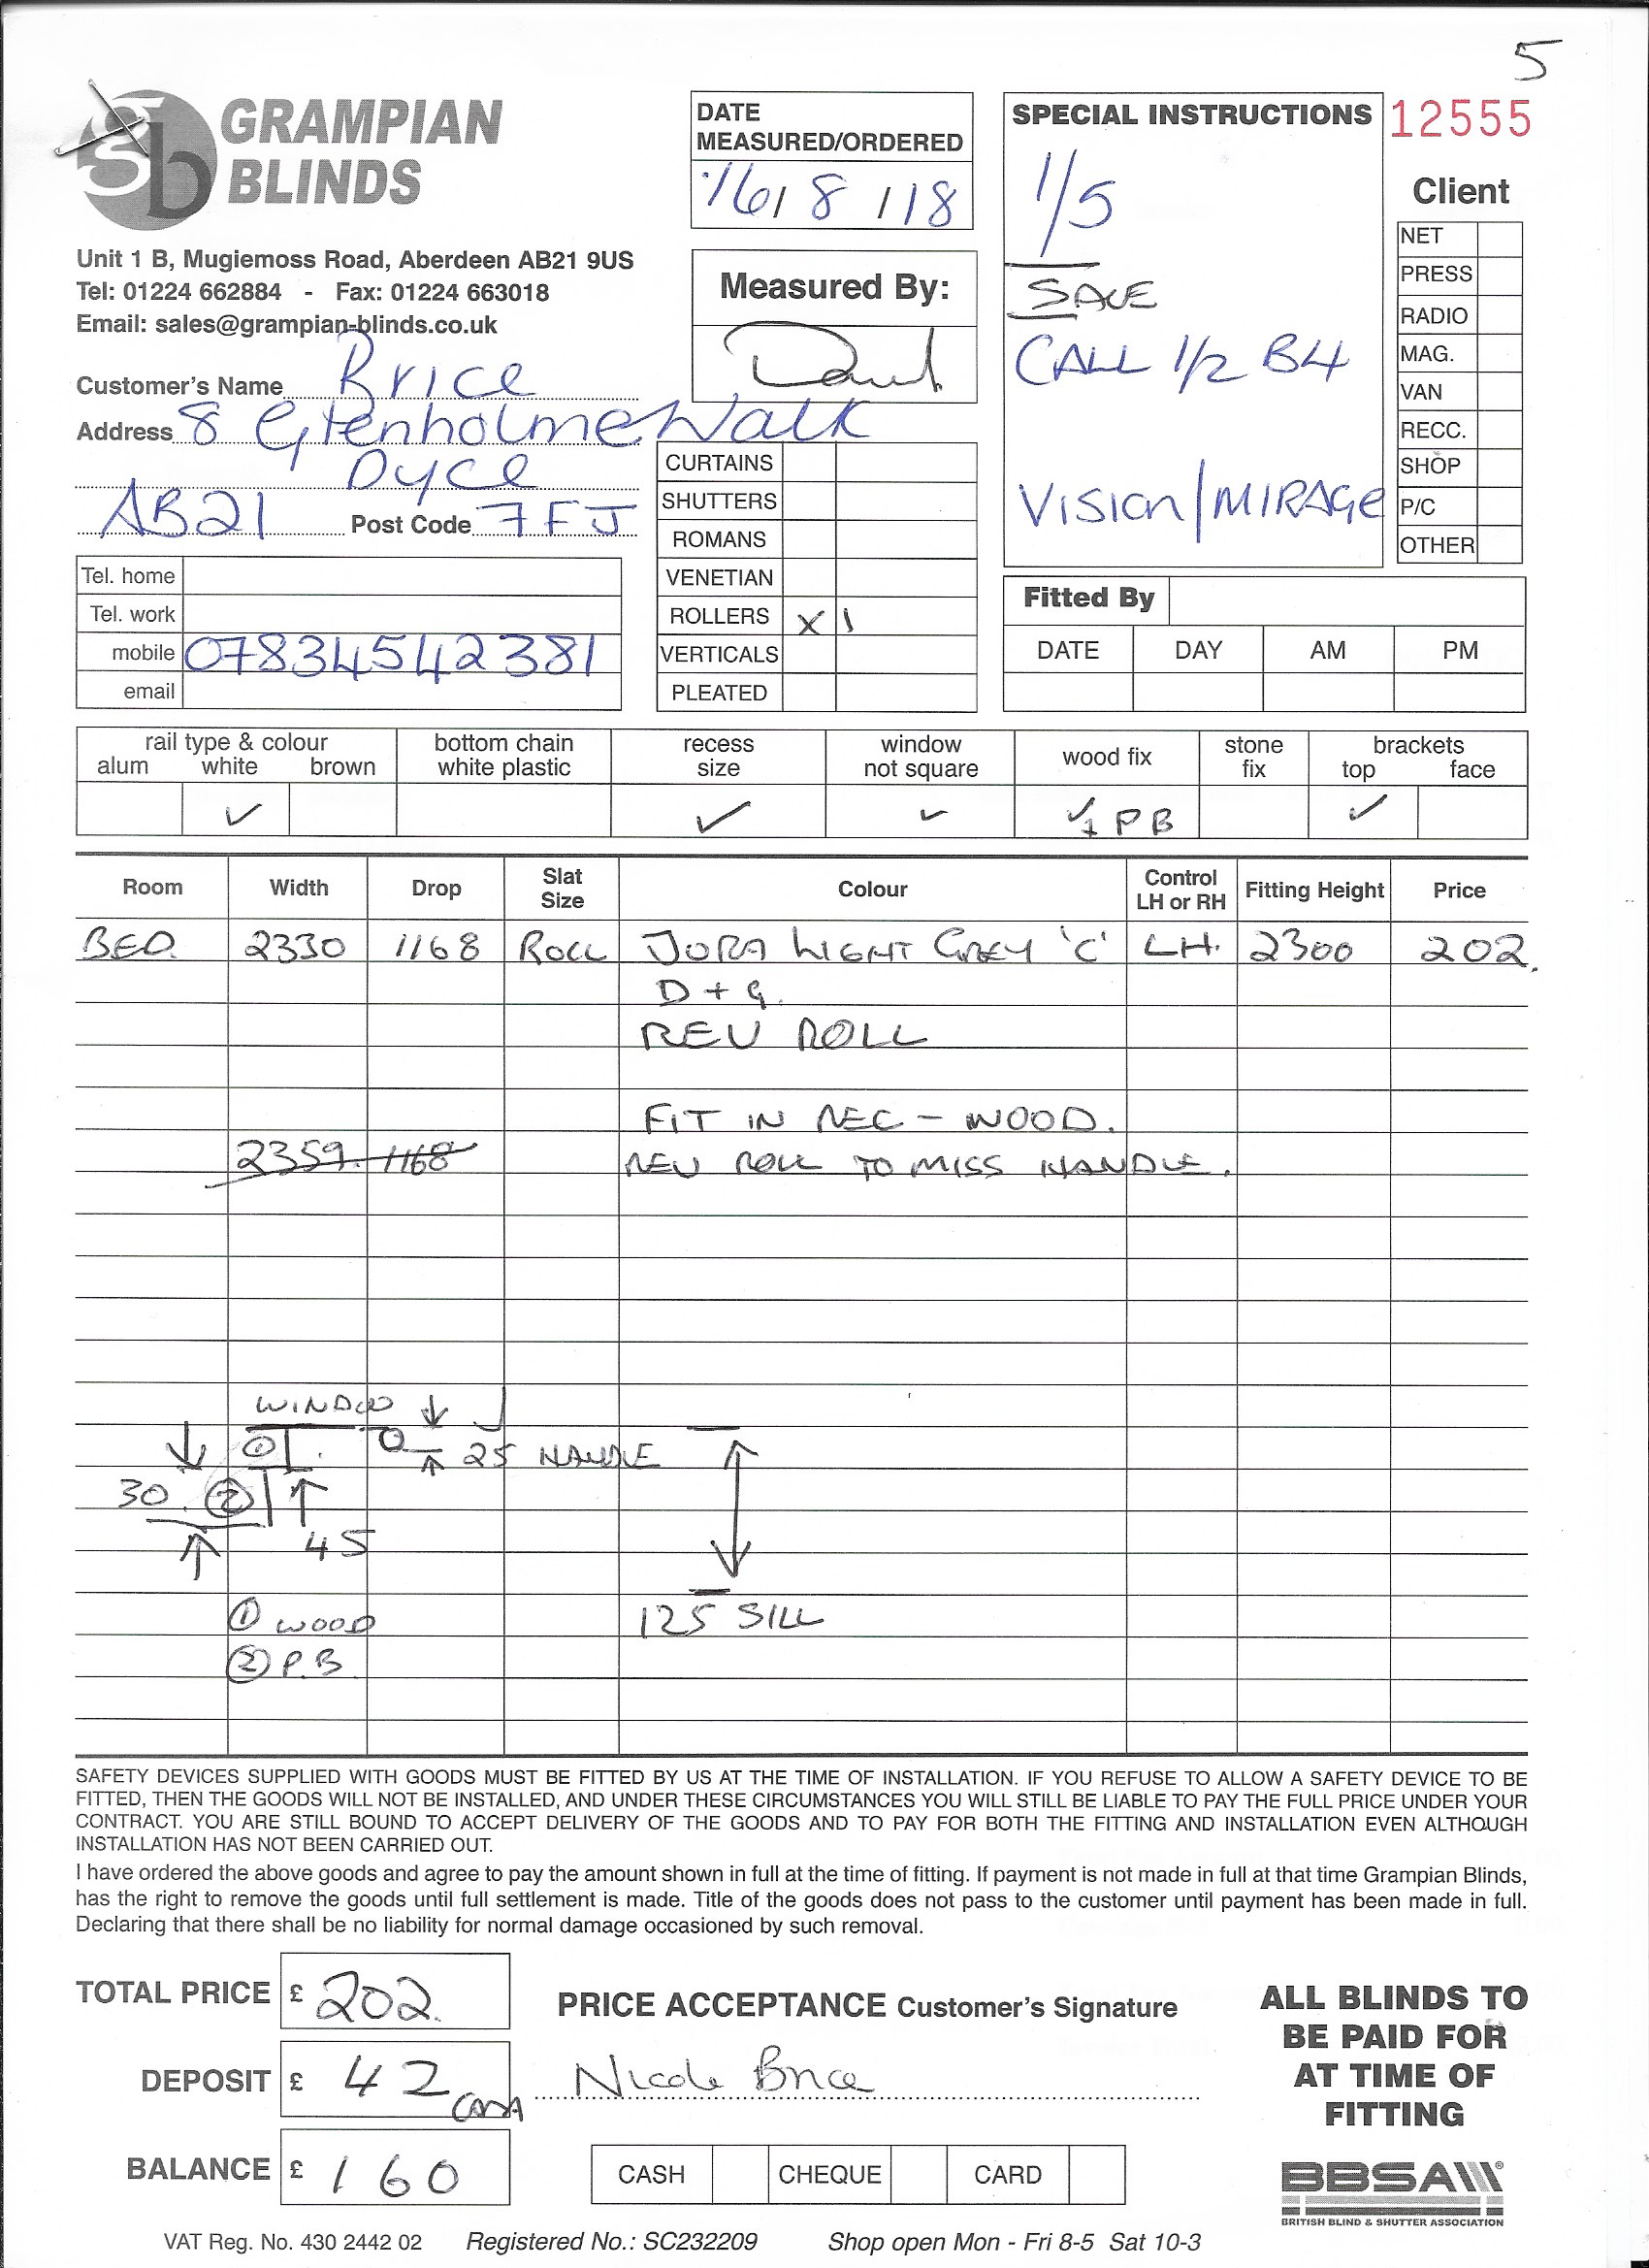 5
GRAMPIAN
BLINDS
Unit 1 B, Mugiemoss Road, Aberdeen AB21 9US
Tel: 01224 662884 - Fax: 01224 663018
Email: sales@grampian-blinds.co.uk
Customer's Name Brice
Address 8 Glenholme Walk
Dyce
AB21 Post Code 7FJ
Tel. home
Tel. work
mobile 07834542381
email
DATE
MEASURED/ORDERED
16/8/18
Measured By:
CURTAINS
SHUTTERS
ROMANS
VENETIAN
ROLLERS X 1
VERTICALS
PLEATED
SPECIAL INSTRUCTIONS
1/5
CALL 1/2 B4
VISION/MIRAGE
12555
Client
NET
PRESS
RADIO
MAG.
VAN
RECC.
SHOP
P/C
OTHER
Fitted By
DATE DAY AM PM
rail type & colour
alum white brown
bottom chain
white plastic
recess
size
window
not square
wood fix
stone
fix
brackets
top face
✓ ✓ ✓ ✓ PB ✓
Room Width Drop Slat Size Colour Control LH or RH Fitting Height Price
BED. 2330 1168 ROLL JORA LIGHT GREY 'C' LH. 2300 202.
D + G.
REV ROLL
FIT IN REC - WOOD.
2359. 1168 REV ROLL TO MISS HANDLE.
WINDOW
① 25 HANDLE
30. ②
45
① WOOD 125 SILL
② P.B
SAFETY DEVICES SUPPLIED WITH GOODS MUST BE FITTED BY US AT THE TIME OF INSTALLATION. IF YOU REFUSE TO ALLOW A SAFETY DEVICE TO BE
FITTED, THEN THE GOODS WILL NOT BE INSTALLED, AND UNDER THESE CIRCUMSTANCES YOU WILL STILL BE LIABLE TO PAY THE FULL PRICE UNDER YOUR
CONTRACT. YOU ARE STILL BOUND TO ACCEPT DELIVERY OF THE GOODS AND TO PAY FOR BOTH THE FITTING AND INSTALLATION EVEN ALTHOUGH
INSTALLATION HAS NOT BEEN CARRIED OUT.
I have ordered the above goods and agree to pay the amount shown in full at the time of fitting. If payment is not made in full at that time Grampian Blinds,
has the right to remove the goods until full settlement is made. Title of the goods does not pass to the customer until payment has been made in full.
Declaring that there shall be no liability for normal damage occasioned by such removal.
TOTAL PRICE £ 202.
DEPOSIT £ 42
BALANCE £ 160
PRICE ACCEPTANCE Customer's Signature
Nicole Brice
CASH CHEQUE CARD
ALL BLINDS TO
BE PAID FOR
AT TIME OF
FITTING
BBSA
BRITISH BLIND & SHUTTER ASSOCIATION
VAT Reg. No. 430 2442 02 Registered No.: SC232209 Shop open Mon - Fri 8-5 Sat 10-3